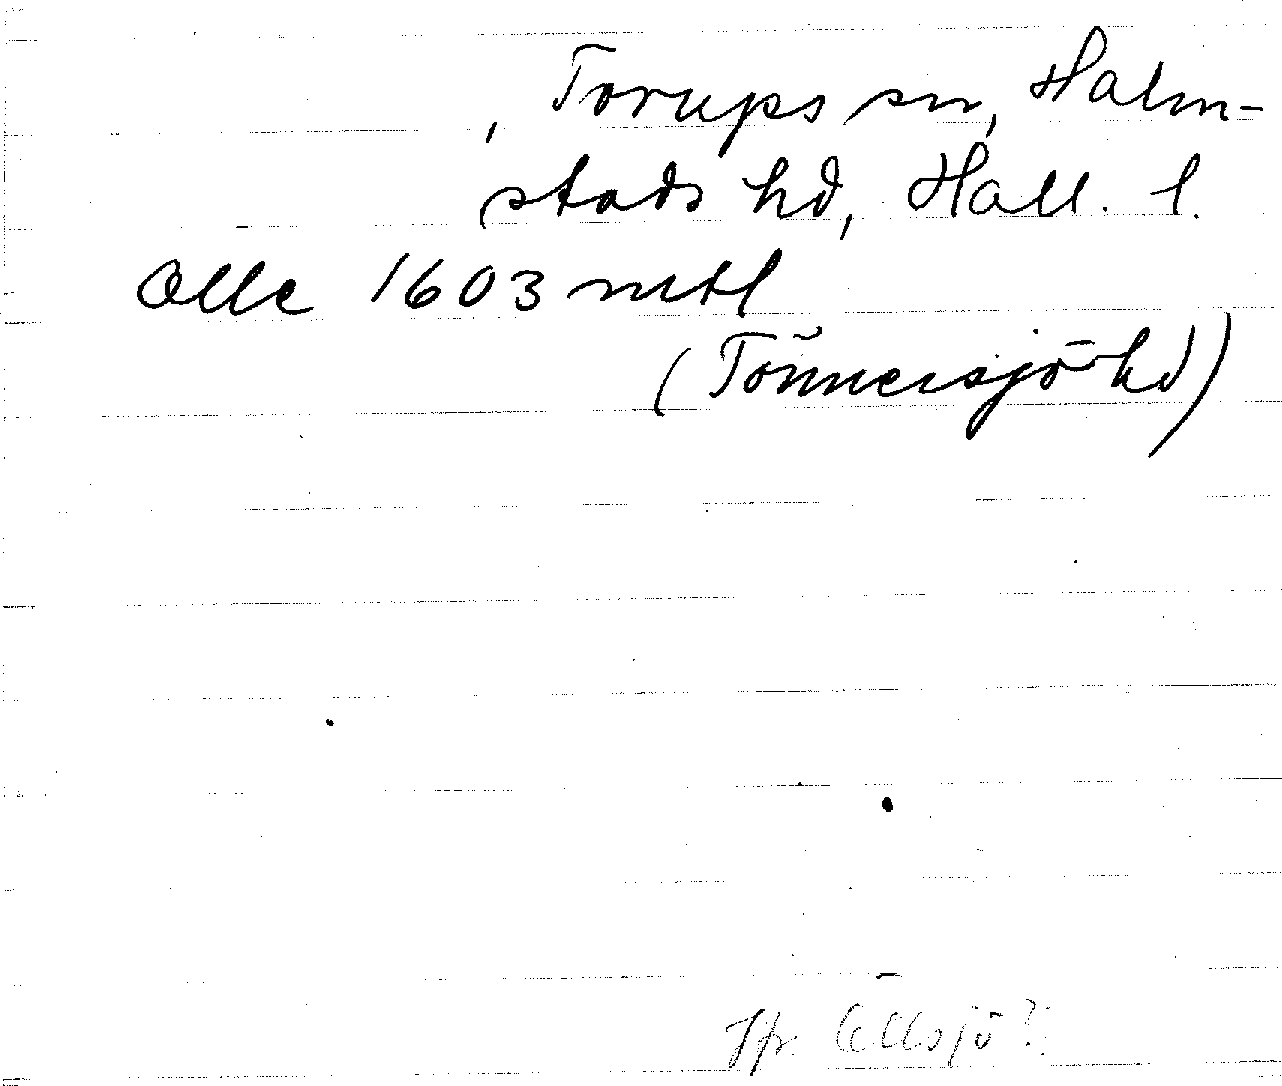 , Torups sn, Halm-
stads hd, Hall. l.
Olle 1603 mtl
(Tönnersjö hd)
Jfr. Ollsjö?